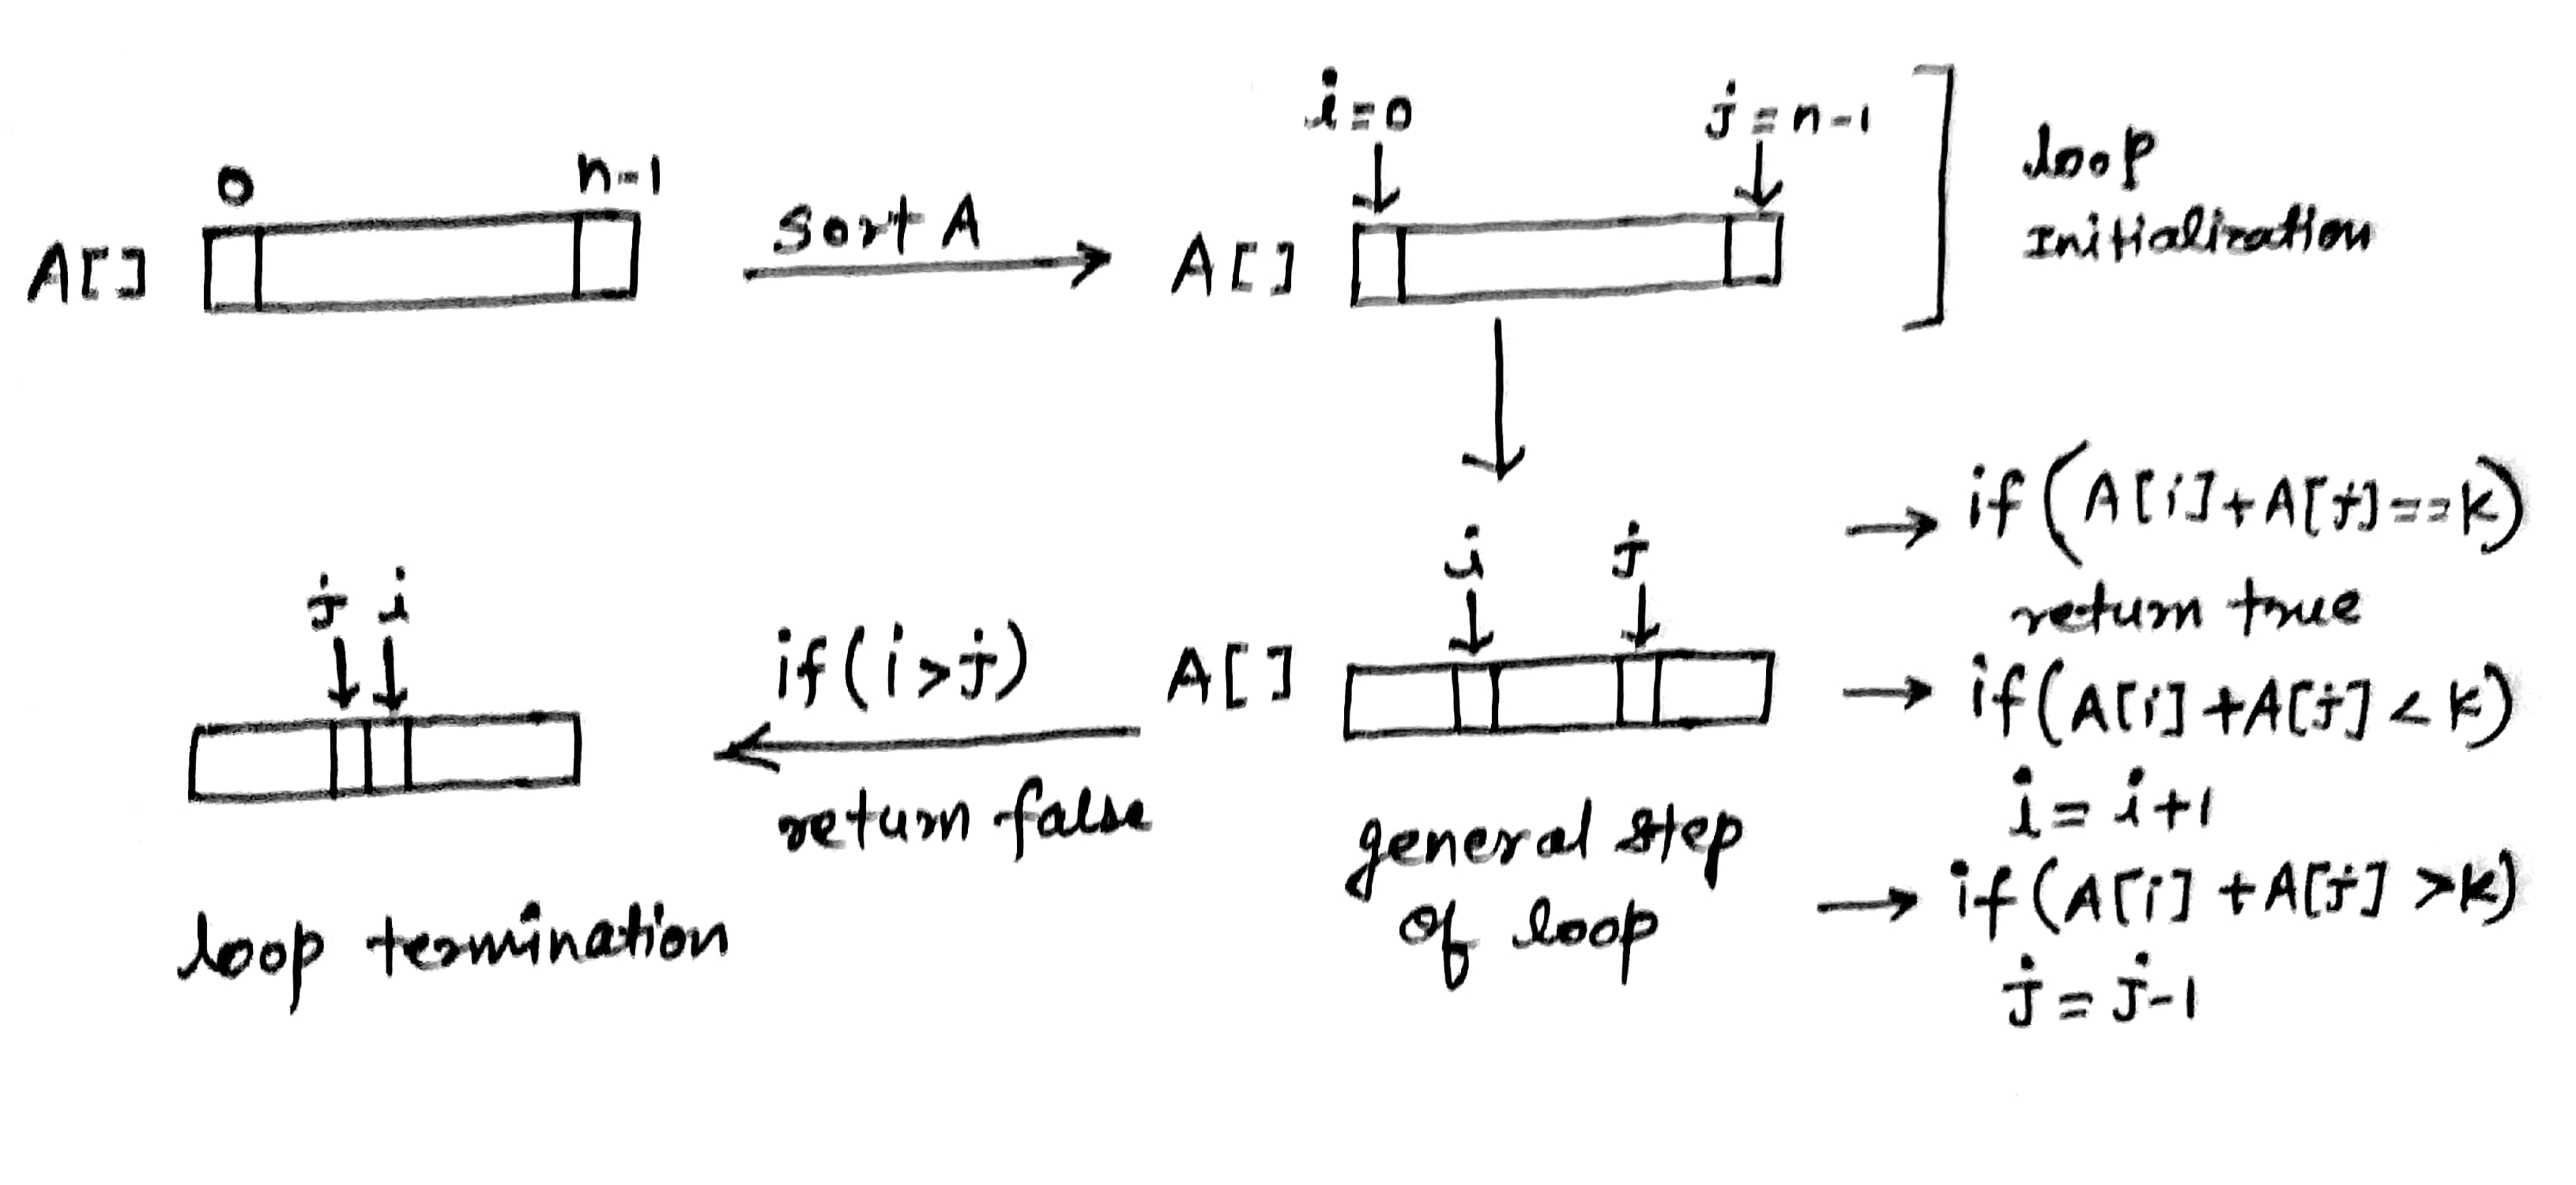 0 n-1
A[]
sort A
i=0 j=n-1
A[]
loop
Initialization
i j
A[]
general step
of loop
→ if (A[i]+A[j]==K)
return true
→ if (A[i]+A[j] < K)
i = i+1
→ if (A[i]+A[j] > K)
j = j-1
if (i>j)
return false
j i
loop termination